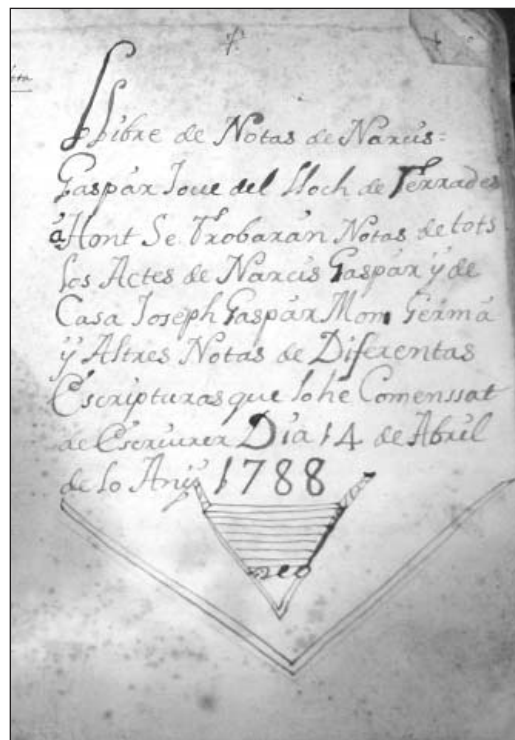 Llibre de Notas de Narcis=
Gaspár Joue del Lloch de Terrades
á Hont Se Trobarán Notas de tots
los Actes de Narcis Gaspár ÿ de
Casa Joseph Gaspár Mon Germá
ÿ Altres Notas de Diferentas
Escripturas que Johe Comenssat
de Escriurer Dia 14 de Abril
de lo Anÿ 1788